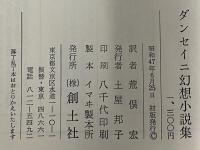 ダンセイニ幻想小説集
一、三〇〇円
昭和47年6月25日 初版発行©
訳者 荒俣 宏
発行者 土屋邦子
印刷 八千代印刷
製本 イマヰ製本所
発行所 ㈱創土社
東京都文京区水道二
振替・東京
電話 八一二
落丁・乱丁本はおとりかえいたします